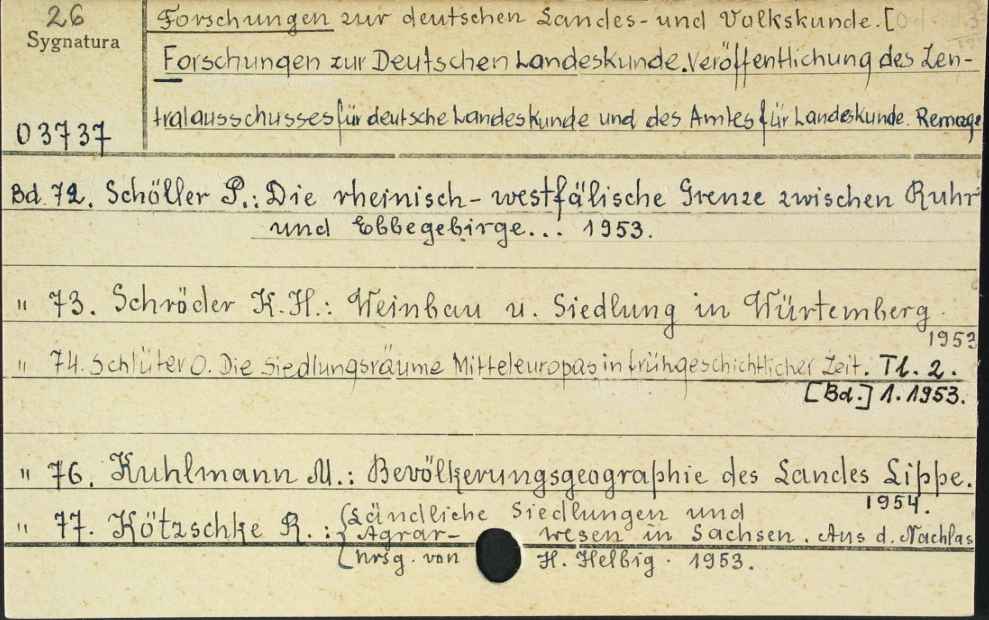 26
Sygnatura
03737
Forschungen zur deutschen Landes- und Volkskunde. [
Forschungen zur Deutschen Landeskunde. Veröffentlichung des Zen-
tralausschusses für deutsche Landeskunde und des Amtes für Landeskunde. Remage
Bd. 72. Schöller P.: Die rheinisch-westfälische Grenze zwischen Ruhr
und Ebbegebirge... 1953.
" 73. Schröder K.H.: Weinbau u. Siedlung in Würtemberg.
1953
" 74. Schlüter O. Die Siedlungsräume Mitteleuropas in frühgeschichtlicher Zeit. Tl. 2.
[Bd.] 1. 1953.
" 76. Kuhlmann M.: Bevölkerungsgeographie des Landes Lippe.
1954.
" 77. Kötzschke R.: Ländliche Siedlungen und
Agrar- wesen in Sachsen. Aus d. Nachlas
hrsg. von H. Helbig. 1953.